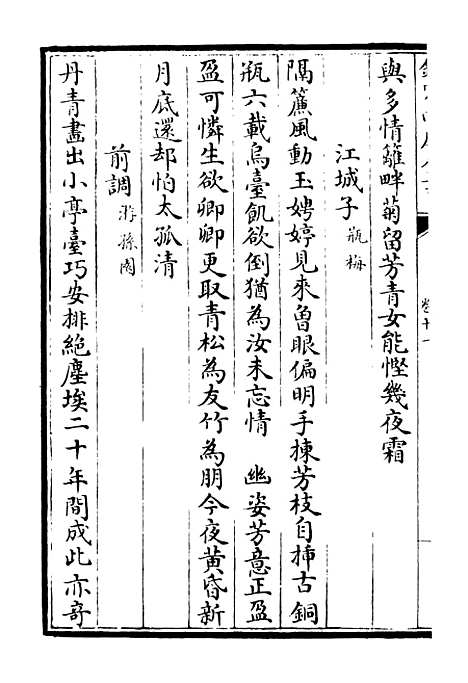 與多情籬畔菊留芳青女能慳幾夜霜
江城子瓶梅
隔簾風動玉娉婷見來曾眼偏明手揀芳枝自揷古銅
瓶六載烏臺飢欲倒猶為汝未忘情　幽姿芳意正盈
盈可憐生欲卿卿更取青松為友竹為朋今夜黄昏新
月底還却怕太孤清
前調游孫園
丹青畫出小亭臺巧安排絶塵埃二十年間成此亦竒